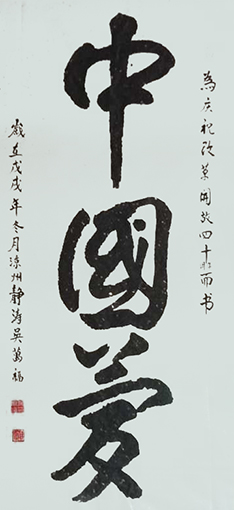 為庆祝改革開放四十年而书
中國夢
歲在戊戌年冬月凉州靜涛吴萬福